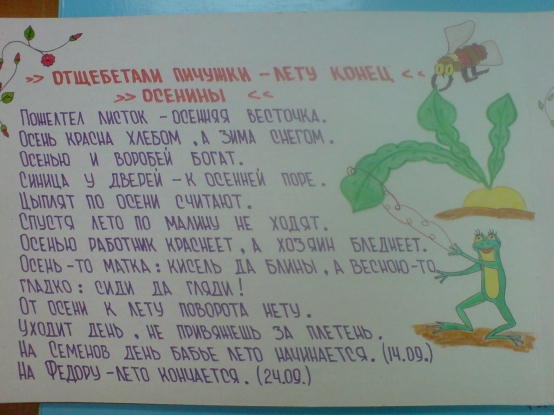 >> ОТЩЕБЕТАЛИ ПИЧУШКИ - ЛЕТУ КОНЕЦ <<
>> ОСЕНИНЫ <<
ПОЖЕЛТЕЛ ЛИСТОК - ОСЕННЯЯ ВЕСТОЧКА.
ОСЕНЬ КРАСНА ХЛЕБОМ, А ЗИМА СНЕГОМ.
ОСЕНЬЮ И ВОРОБЕЙ БОГАТ.
СИНИЦА У ДВЕРЕЙ - К ОСЕННЕЙ ПОРЕ.
ЦЫПЛЯТ ПО ОСЕНИ СЧИТАЮТ.
СПУСТЯ ЛЕТО ПО МАЛИНУ НЕ ХОДЯТ.
ОСЕНЬЮ РАБОТНИК КРАСНЕЕТ, А ХОЗЯИН БЛЕДНЕЕТ.
ОСЕНЬ-ТО МАТКА: КИСЕЛЬ ДА БЛИНЫ, А ВЕСНОЮ-ТО
ГЛАДКО: СИДИ ДА ГЛЯДИ!
ОТ ОСЕНИ К ЛЕТУ ПОВОРОТА НЕТУ.
УХОДИТ ДЕНЬ, НЕ ПРИВЯЖЕШЬ ЗА ПЛЕТЕНЬ.
НА СЕМЕНОВ ДЕНЬ БАБЬЕ ЛЕТО НАЧИНАЕТСЯ. (14.09.)
НА ФЕДОРУ - ЛЕТО КОНЧАЕТСЯ. (24.09.)